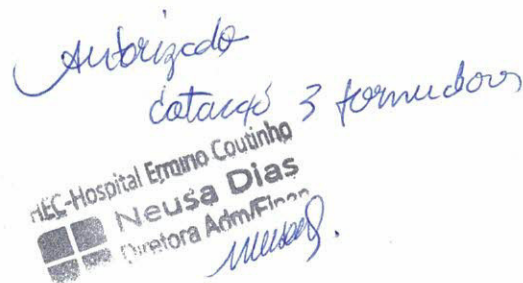 Autorizado
cotação 3 fornecedores
HEC-Hospital Ermino Coutinho
Neusa Dias
Diretora Adm/Finan